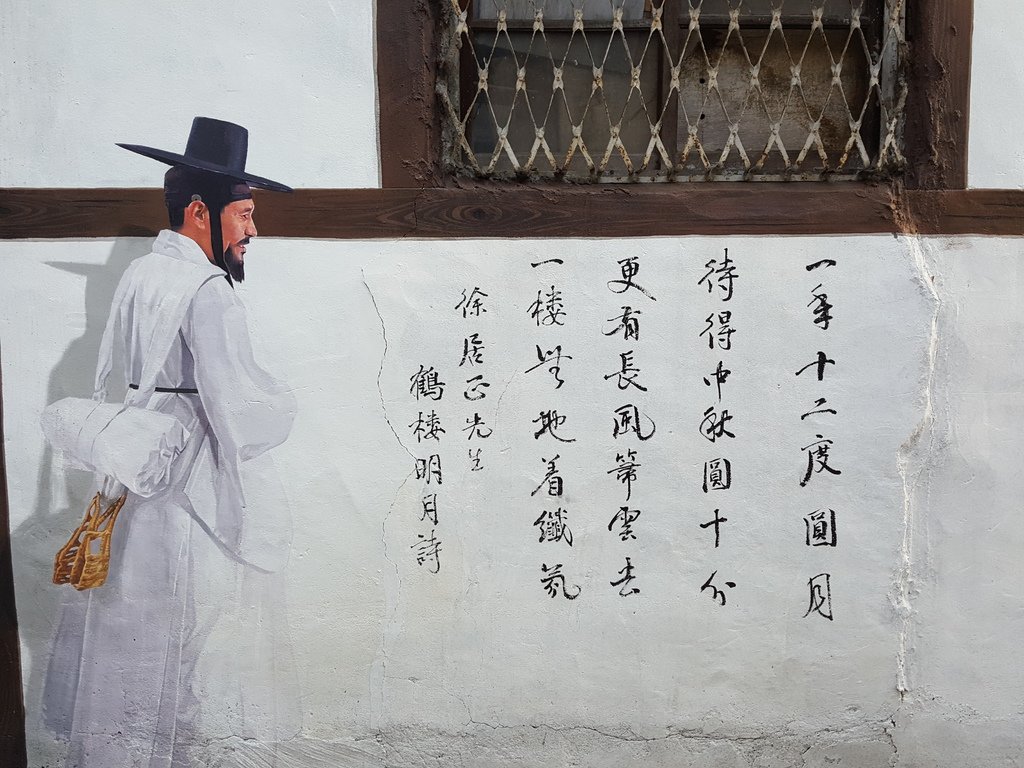 一年十二度圓月
待得中秋圓十分
更有長風箒雲去
一楼無地着纖氛
徐居正先生
鶴楼明月詩